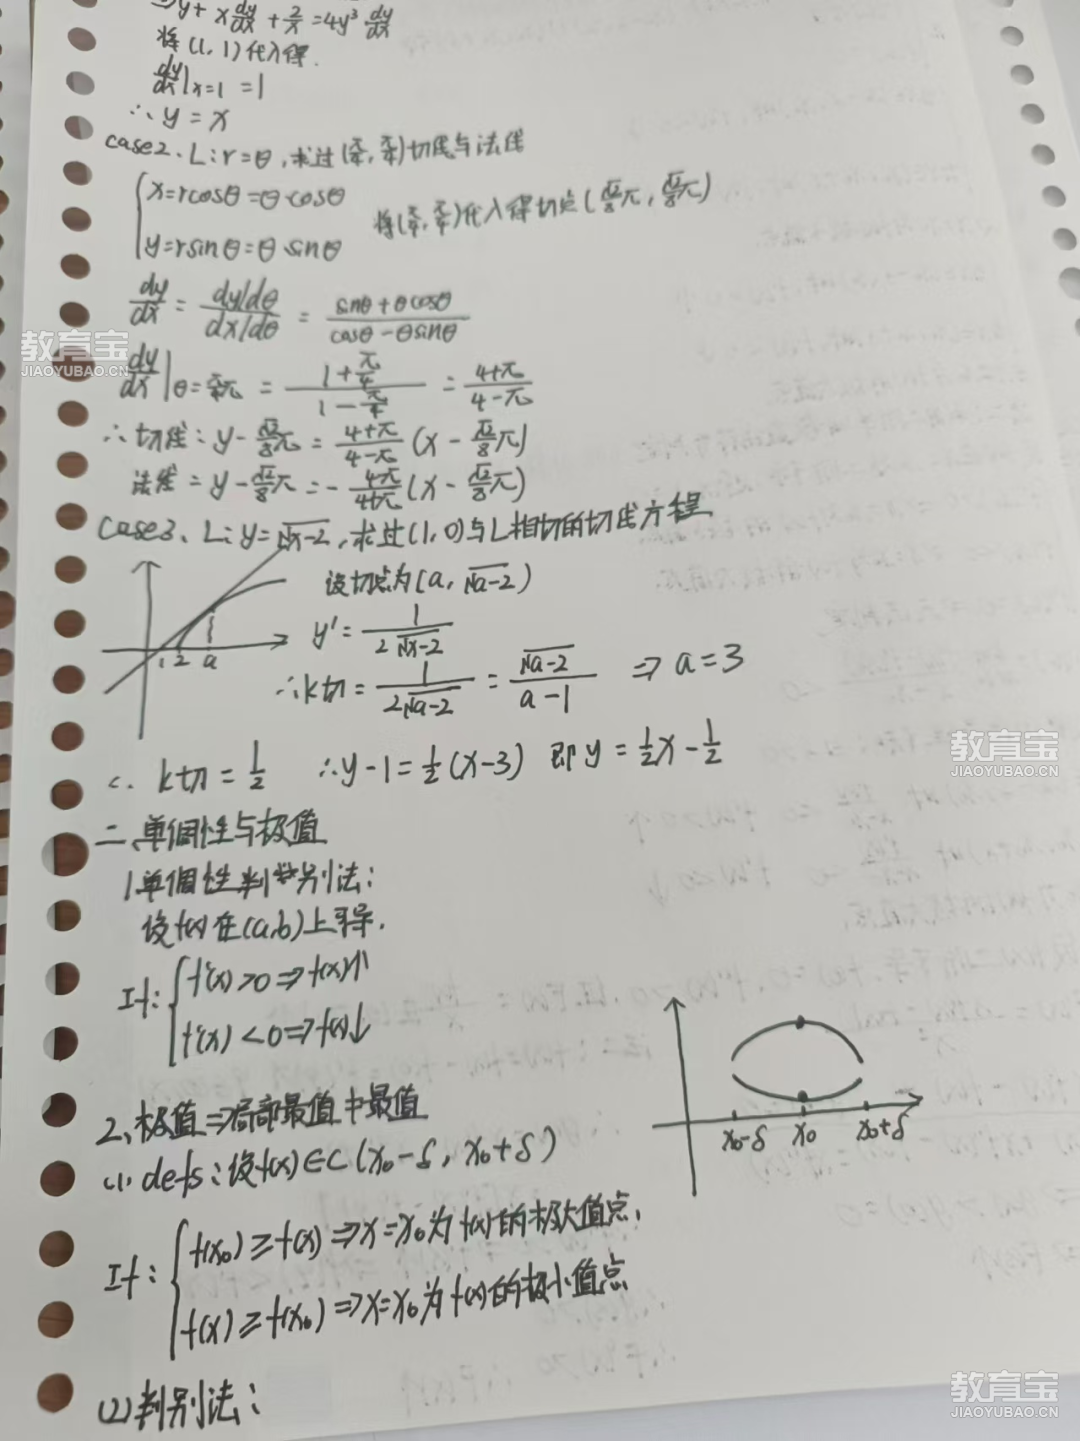 ⇒y + x dy/dx + 2/x = 4y³ dy/dx
将(1, 1)代入得.
dy/dx|x=1 = 1
∴ y = x
case2、L: r=θ, 求过(π/4, π/4)切线与法线
{x=rcosθ=θ·cosθ
y=rsinθ=θ·sinθ
将(π/4, π/4)代入得切点(√2/8π, √2/8π)
dy/dx = (dy/dθ)/(dx/dθ) = (sinθ+θcosθ)/(cosθ-θsinθ)
教育宝
JIAOYUBAO.CN
dy/dx|θ=π/4 = (1+π/4)/(1-π/4) = (4+π)/(4-π)
∴切线: y-√2/8π = (4+π)/(4-π)(x-√2/8π)
法线= y-√2/8π = -(4-π)/(4+π)(x-√2/8π)
case3、L: y=√x-2, 求过(1,0)与L相切的切线方程
设切点为(a, √a-2)
y' = 1/(2√x-2)
1 2 a
∴k切 = 1/(2√a-2) = √a-2/(a-1) ⇒ a=3
∴ k切 = 1/2 ∴y-1=1/2(x-3) 即y=1/2x-1/2
教育宝
JIAOYUBAO.CN
二、单调性与极值
1、单调性判别法:
设f(x)在(a,b)上可导.
If: {f'(x)>0⇒f(x)↑
f'(x)<0⇒f(x)↓
2、极值⇒局部最值中最值
(1) defs: 设f(x)∈C(x₀-δ, x₀+δ)
x₀-δ x₀ x₀+δ
If: {f(x₀)≥f(x)⇒x=x₀为f(x)的极大值点,
f(x)≥f(x₀)⇒x=x₀为f(x)的极小值点
(2)判别法:
教育宝
JIAOYUBAO.CN